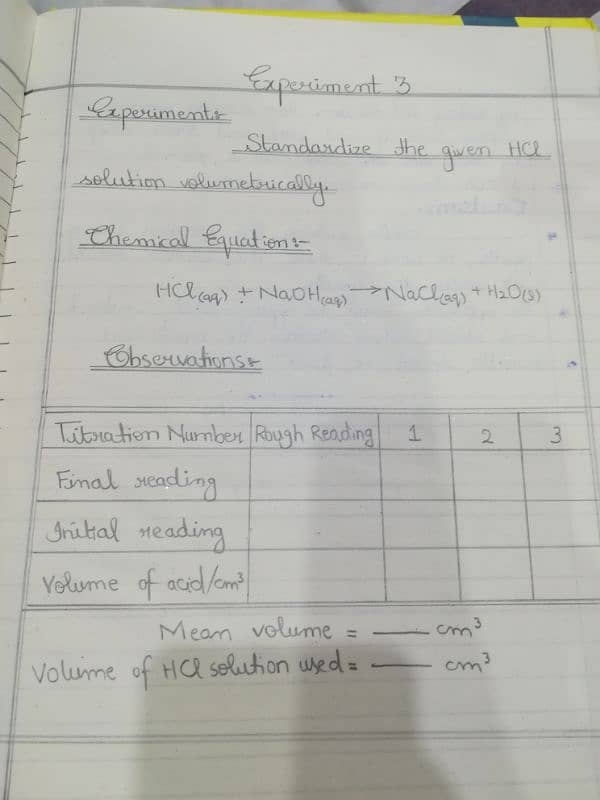 Experiment 3
Experiment:-
Standardize the given HCl
solution volumetrically.
Chemical Equation:-
HCl(aq) + NaOH(aq) → NaCl(aq) + H2O(s)
Observations:-
Titration Number Rough Reading 1 2 3
Final reading
Initial reading
Volume of acid/cm³
Mean volume = —— cm³
Volume of HCl solution used = —— cm³